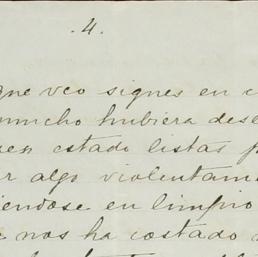 .4.
que veo signes en c
mucho hubiera dese
sen estado listas p
r algo violentame
iendose en limpio
nos ha costado